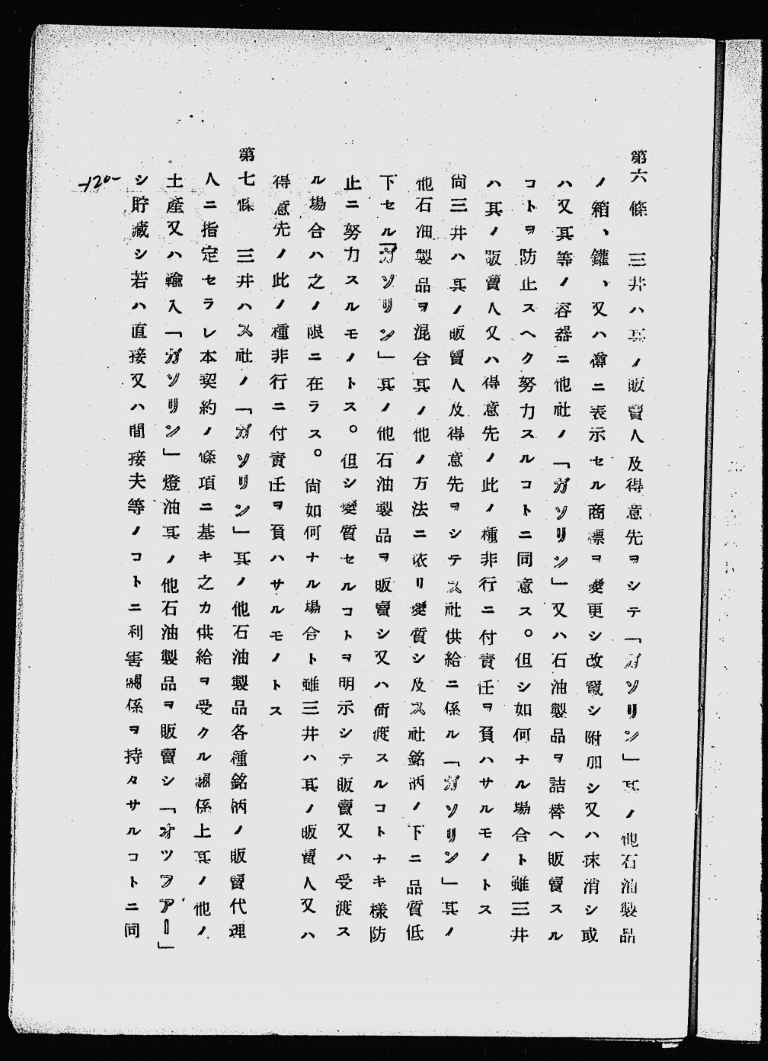 第六條　三井ハ其ノ販賣人及得意先ヲシテ「ガソリン」其ノ他石油製品
ノ箱、罐、又ハ樽ニ表示セル商標ヲ變更シ改竄シ附加シ又ハ抹消シ或
ハ又其等ノ容器ニ他社ノ「ガソリン」又ハ石油製品ヲ詰替ヘ販賣スル
コトヲ防止スヘク努力スルコトニ同意ス。但シ如何ナル場合ト雖三井
ハ其ノ販賣人又ハ得意先ノ此ノ種非行ニ付責任ヲ負ハサルモノトス
尙三井ハ其ノ販賣人及得意先ヲシテス社供給ニ係ル「ガソリン」其ノ
他石油製品ヲ混合其ノ他ノ方法ニ依リ變質シ及ス社銘柄ノ下ニ品質低
下セル「ガソリン」其ノ他石油製品ヲ販賣シ又ハ荷渡スルコトナキ樣防
止ニ努力スルモノトス。但シ變質セルコトヲ明示シテ販賣又ハ受渡ス
ル場合ハ之ノ限ニ在ラス。尙如何ナル場合ト雖三井ハ其ノ販賣人又ハ
得意先ノ此ノ種非行ニ付責任ヲ負ハサルモノトス
第七條　三井ハス社ノ「ガソリン」其ノ他石油製品各種銘柄ノ販賣代理
人ニ指定セラレ本契約ノ條項ニ基キ之カ供給ヲ受クル關係上其ノ他ノ
土產又ハ輸入「ガソリン」燈油其ノ他石油製品ヲ販賣シ「オツフアー」
シ貯藏シ若ハ直接又ハ間接夫等ノコトニ利害關係ヲ持タサルコトニ同
-120-